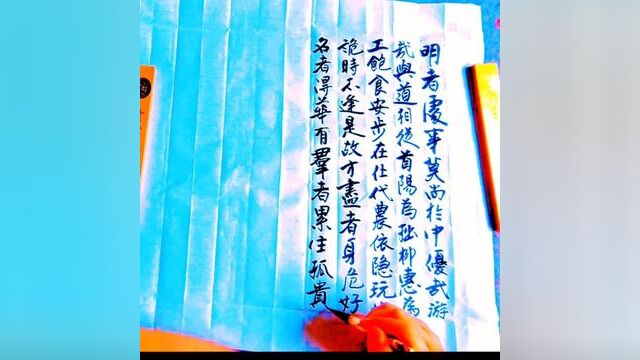 明者處事莫尚於中優哉游
哉與道相從首陽為拙柳惠為
工飽食安步在仕代農依隐玩
詭時不逢是故才盡者身危好
名者得華有羣者累生孤貴